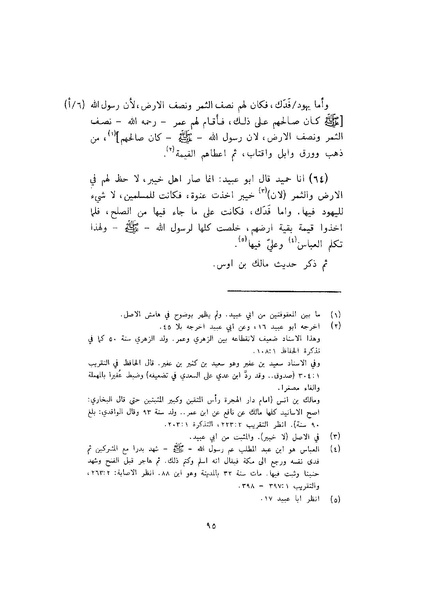 وأما يهود/فَدَك، فكان لهم نصف الثمر ونصف الارض، لأن رسول الله (٦/أ)
[ﷺ كان صالحهم على ذلك، فأقام لهم عمر - رحمه الله - نصف
الثمر ونصف الارض، لان رسول الله - ﷺ - كان صالحهم](١)، من
ذهب وورق وابل واقتاب، ثم أعطاهم القيمة(٢).
(٦٤) انا حميد قال ابو عبيد: انما صار اهل خيبر، لا حظ لهم في
الارض والثمر (لان)(٣) خيبر أخذت عنوة، فكانت للمسلمين، لا شيء
لليهود فيها. واما فَدَك، فكانت على ما جاء فيها من الصلح، فلما
أخذوا قيمة بقية ارضهم، خلصت كلها لرسول الله - ﷺ - ولهذا
تكلم العباس(٤) وعليّ فيها(٥).
ثم ذكر حديث مالك بن اوس.
(١) ما بين المعقوفتين من ابي عبيد. ولم يظهر بوضوح في هامش الاصل.
(٢) اخرجه ابو عبيد ١٦، وعن ابي عبيد اخرجه بلا ٤٥.
وهذا الاسناد ضعيف لانقطاعه بين الزهري وعمر. ولد الزهري سنة ٥٠ كما في
تذكرة الحفاظ ١٠٨:١.
وفي الاسناد سعيد بن عفير وهو سعيد بن كثير بن عفير. قال الحافظ في التقريب
٣٠٤:١ (صدوق.. وقد ردَّ ابن عدي على السعدي في تضعيفه) وضبط عُفيرا بالمهملة
والفاء مصغرا.
ومالك بن انس (امام دار الهجرة رأس المتقين وكبير المثبتين حتى قال البخاري:
اصح الاسانيد كلها مالك عن نافع عن ابن عمر.. ولد سنة ٩٣ وقال الواقدي: بلغ
٩٠ سنة). انظر التقريب ٢٢٣:٢، التذكرة ٢٠٣:١.
(٣) في الاصل (لا خيبر). والمثبت من ابي عبيد.
(٤) العباس هو ابن عبد المطلب عم رسول الله - ﷺ - شهد بدرا مع المشركين ثم
فدى نفسه ورجع الى مكة فيقال انه اسلم وكتم ذلك. ثم هاجر قبل الفتح وشهد
حنينا وثبت فيها. مات سنة ٣٢ بالمدينة وهو ابن ٨٨. انظر الاصابة ٢٦٣:٢،
والتقريب ٣٩٧:١ - ٣٩٨.
(٥) انظر ابا عبيد ١٧.
٩٥